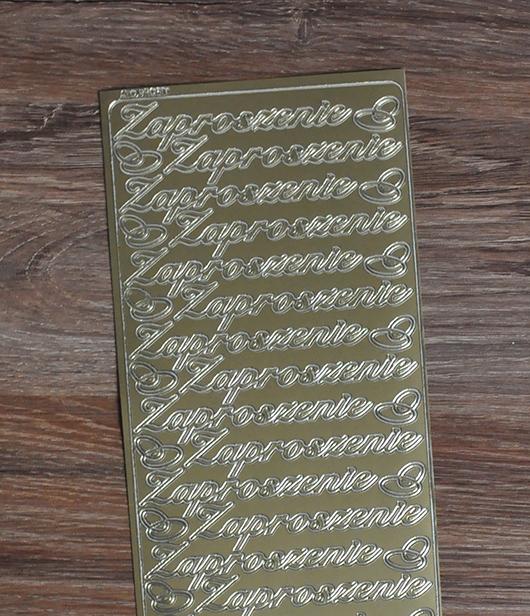 Zaproszenie
Zaproszenie
Zaproszenie
Zaproszenie
Zaproszenie
Zaproszenie
Zaproszenie
Zaproszenie
Zaproszenie
Zaproszenie
Zaproszenie
Zaproszenie
Zaproszenie
Zaproszenie